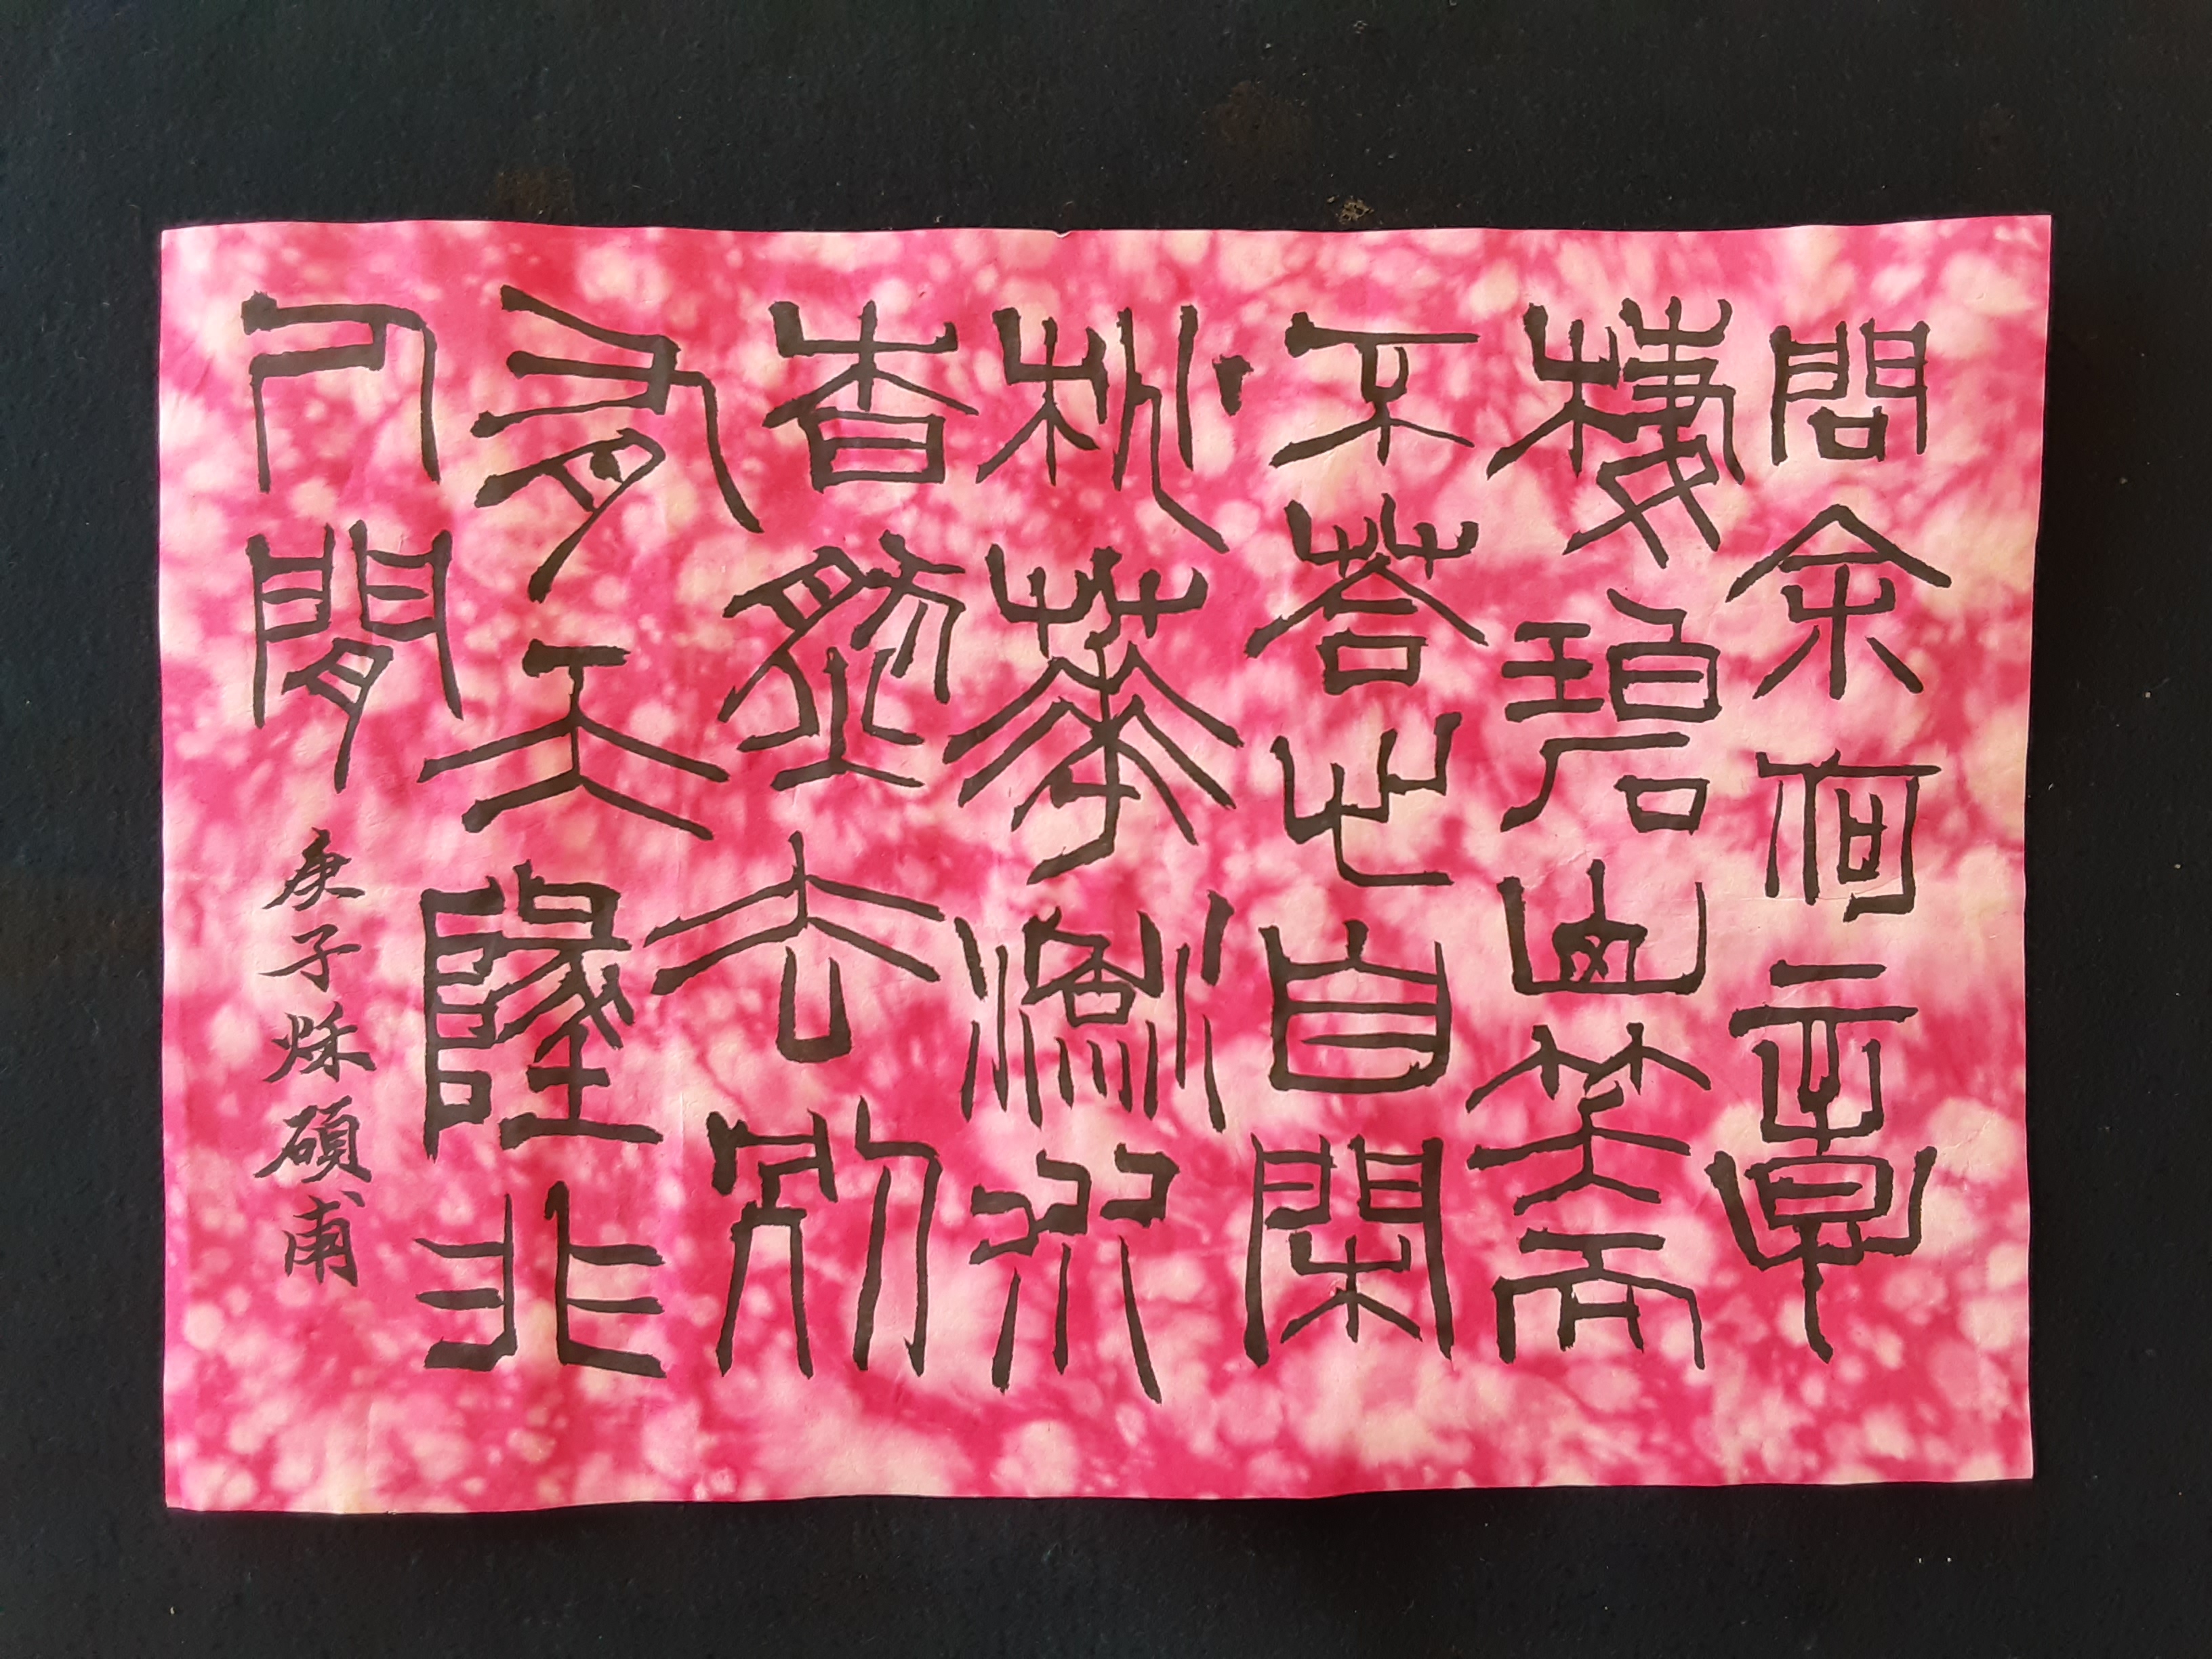 問余何意
棲碧山笑而
不荅心自閑
桃華流水
杳然去別
有天墬非
人間
庚子秌碩甫